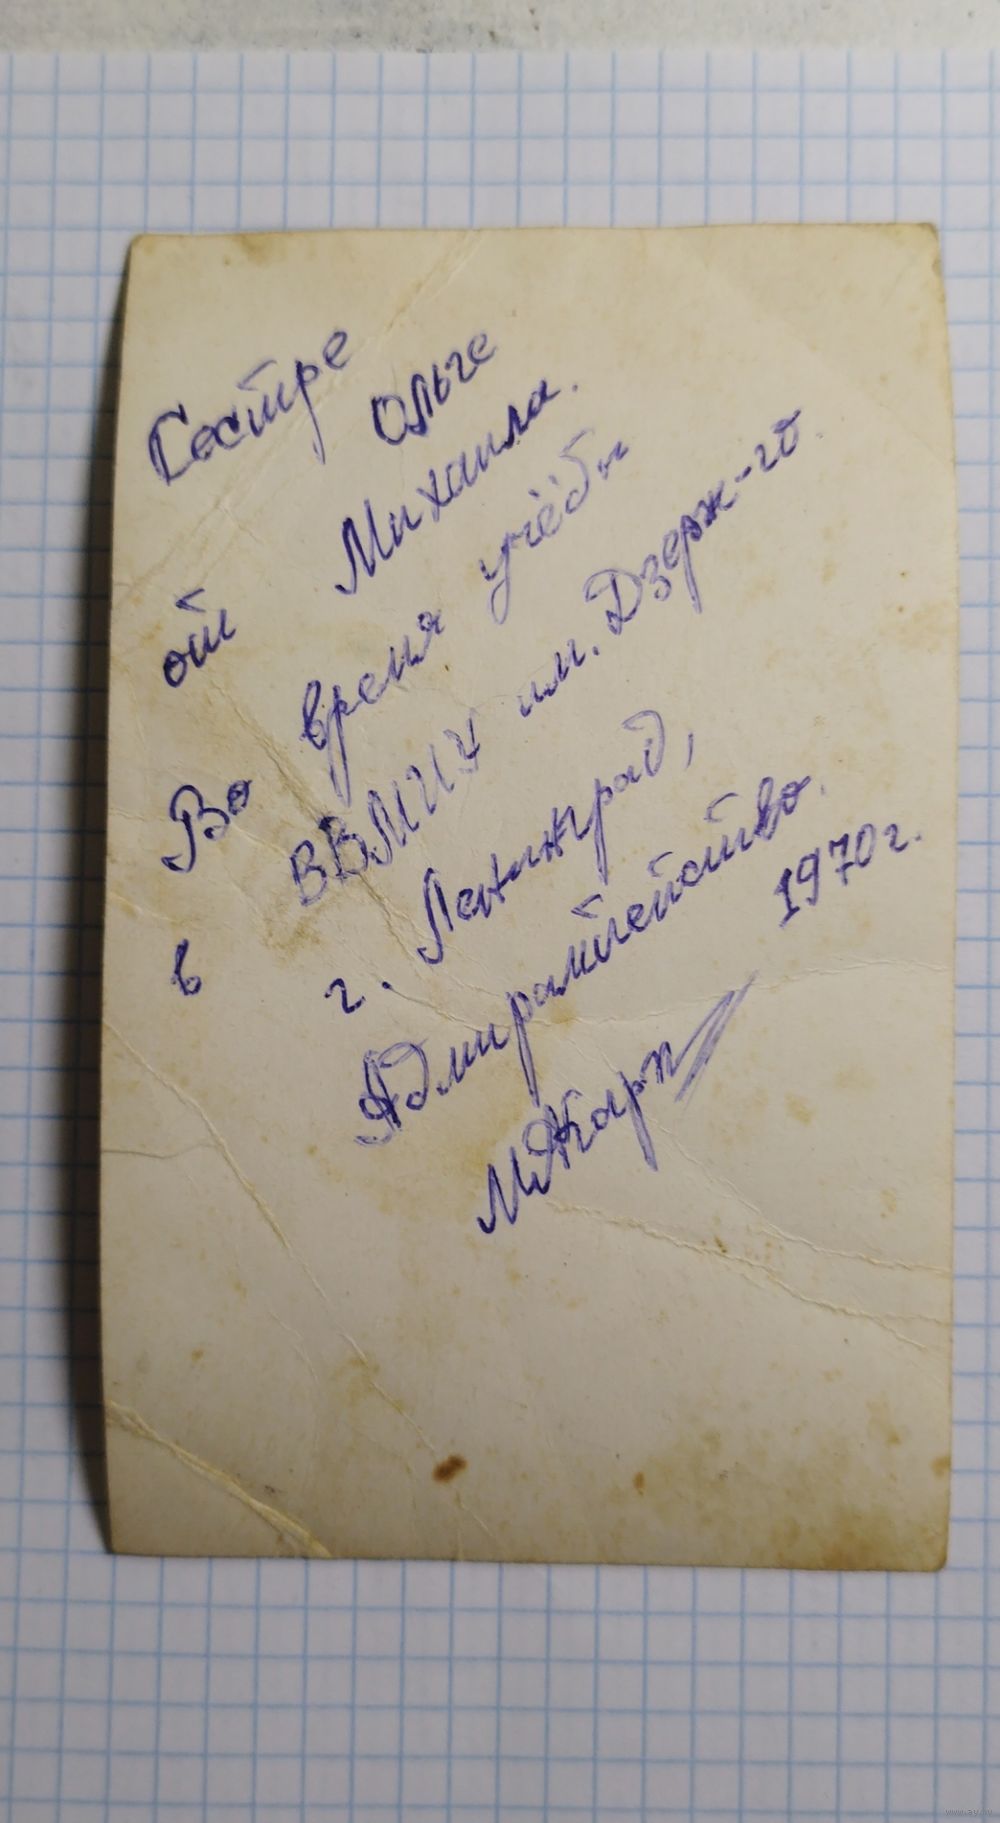 Сестре Ольге
от Михаила.
Во время учёбы
в ВВМИУ им. Дзерж-го.
г. Ленинград,
Адмиралтейство.
1970г.